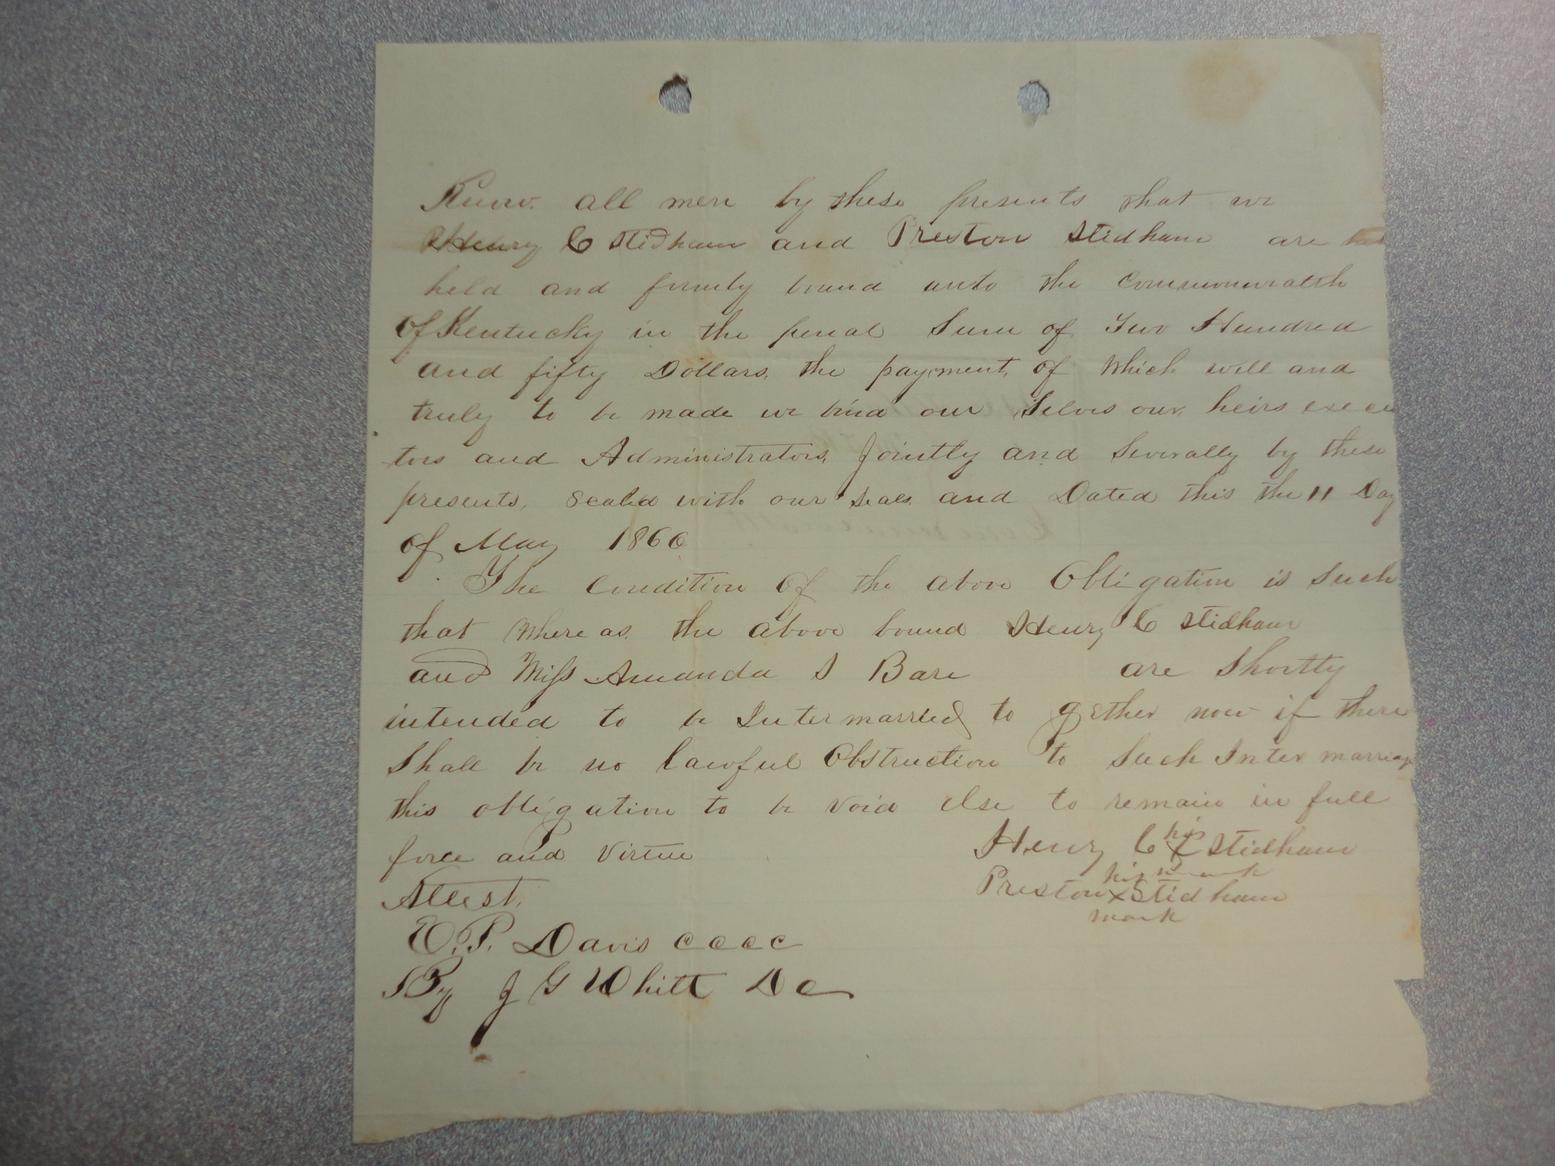 Know all men by these presents that we
Henry C Stidham and Preston Stidham are
held and firmly bound unto the commonwealth
Of Kentucky in the penal Sum of Two Hundred
and fifty Dollars, the payment, of Which will and
truly to be made we bind our Selves our, heirs execu
tors and Administrators, Jointly and Severally by these
presents, Sealed with our Seals and Dated this the 11 Day
of May 1860
The Condition of the above Obligation is Such
that Where as, the above bound Henry C Stidham
and Miss Amanda S Bare are Shortly
intended to be Intermarried to gether now if there
Shall be no lawful Obstruction to Such Inter marriage
this obligation to be void else to remain in full
force and virtue
Henry C his X Stidham
mark
his
Preston X Stidham
mark
Attest,
E. P. Davis c c c c
By J G Whitt D C